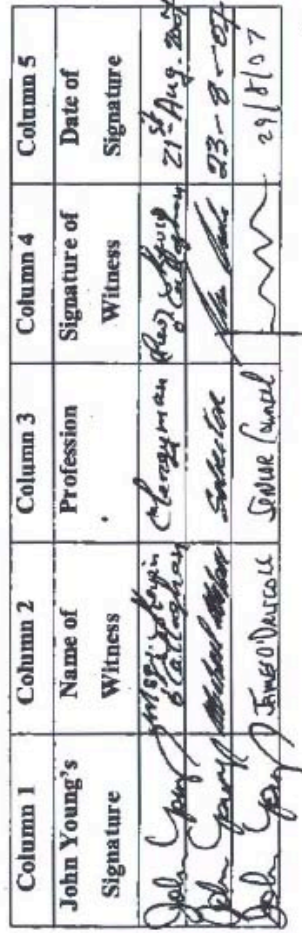 Column 1 Column 2 Column 3 Column 4 Column 5
John Young's Signature Name of Witness Profession Signature of Witness Date of Signature
John Young O'Callaghan Clergyman (Rev) 21st Aug. 2007
John Young Michael Solicitor 23-8-07
John Young JAMES O'DRISCOLL SENIOR Counsel 29/8/07